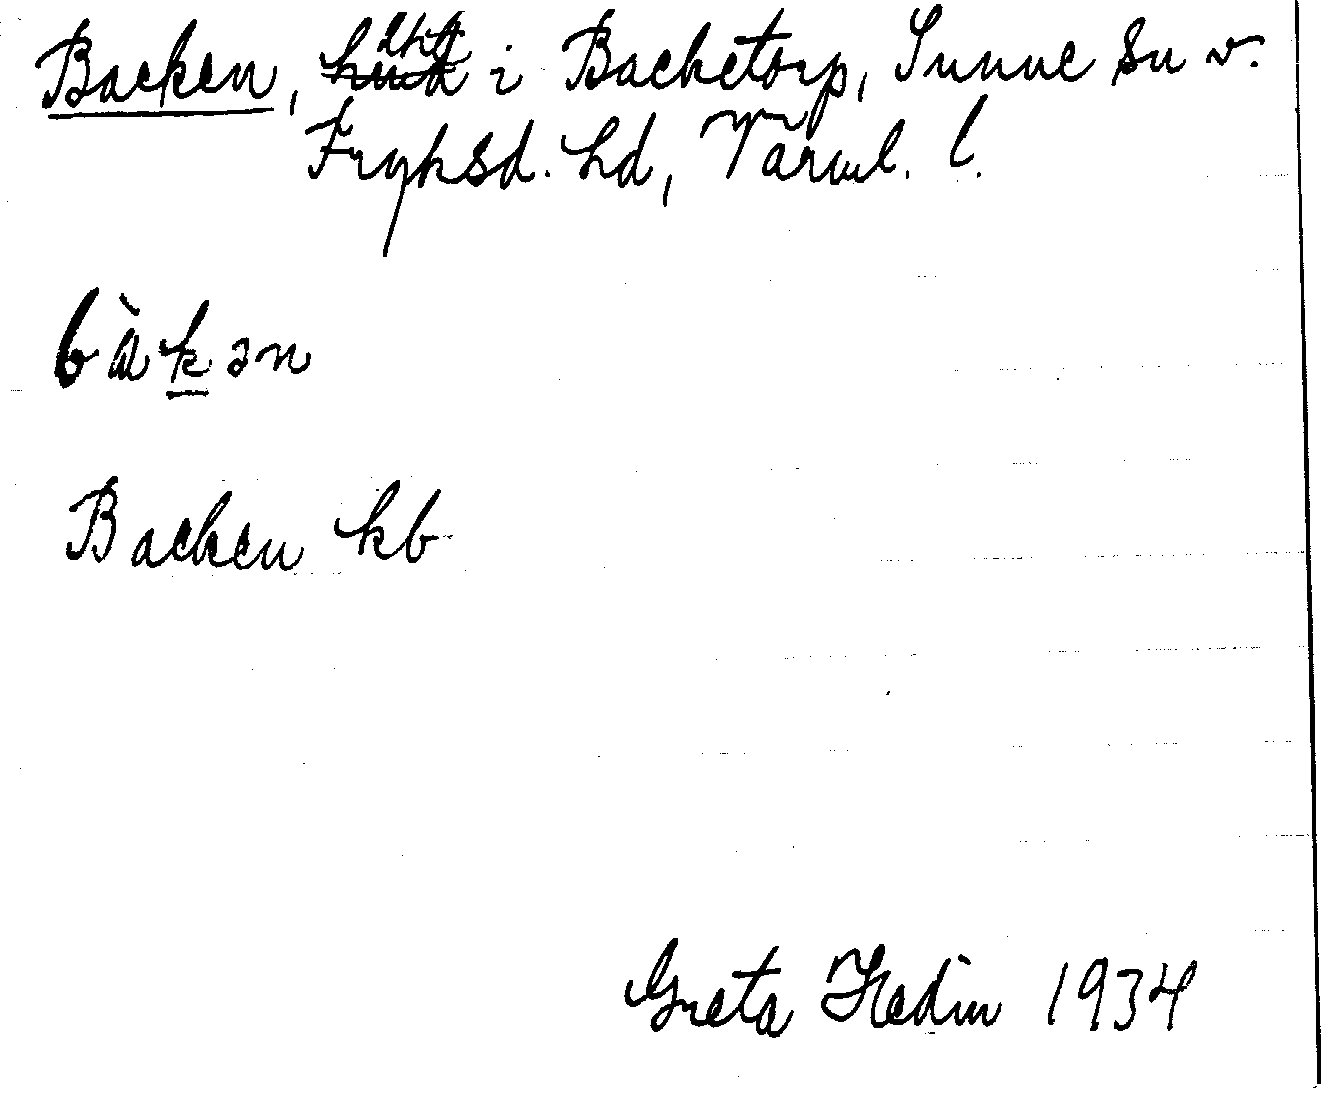 Backen, i Backetorp, Sunne sn v.
Fryksd. hd, Värml. l.
bàkən
Backen kb
Greta Hedin 1934